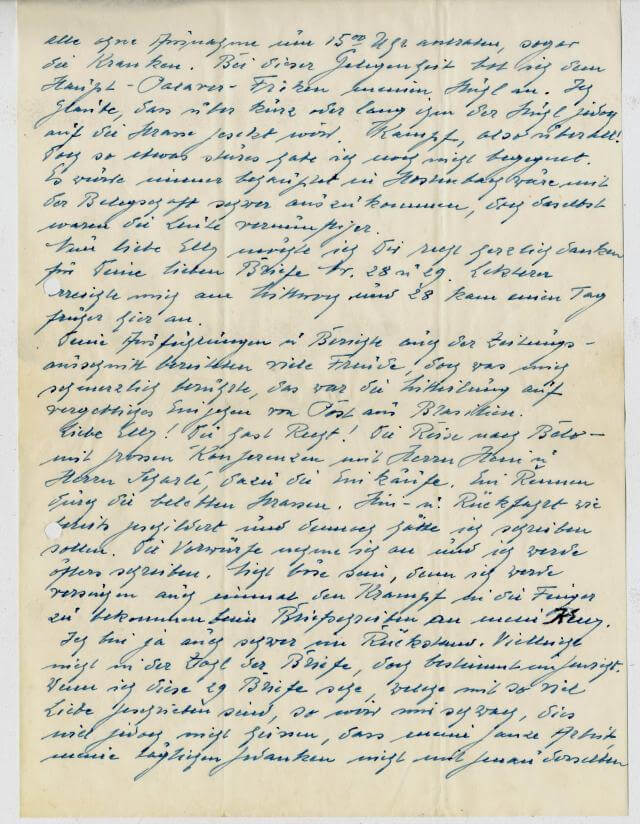 alle ohne Ausnahme um 15 00 Uhr antraten, sogar
die Kranken. Bei dieser Gelegenheit bot ich dem
Haupt - - einen Stuhl an. Ich
glaube, dass über kurz oder lang ihm der Stuhl jedoch
auf die Strasse gesetzt wird. Kampf, also überall!
doch so etwas stures habe ich noch nicht begegnet.
Es würde immer behauptet in Hostenbach wäre mit
der Belegschaft schwer auszukommen, doch daselbst
waren die Leute vernünftiger.
Nun liebe Elly möchte ich Dir recht herzlich danken
für Deine lieben Briefe Nr. 28 u 29. Letzterer
erreichte mich am Mittwoch und 28 kam einen Tag
früher hier an.
Deine Ausführungen u Berichte auch der Zeitungs-
ausschnitt bereiteten viele Freude, doch was mich
schmerzlich berührte, das war die Mitteilung auf
vergebliches Eingehen von Post aus Brasilien.
Liebe Elly! Du hast Recht! Die Reise nach
mit grossen Konferenzen mit Herrn Henn u
Herrn , dazu die Einkäufe. Ein Rennen
durch die belebten Strassen. Hin- u. Rückfahrt wie
bereits geschildert und dennoch hätte ich schreiben
sollen. Die Vorwürfe nehme ich an und ich werde
öfters schreiben. Nicht böse sein, denn ich werde
versuchen auch einmal den Krampf in die Finger
zu bekommen beim Briefschreiben an mein
Ich bin ja auch schwer im Rückstand. Vielleicht
nicht in der Zahl der Briefe, doch bestimmt im
Wenn ich diese 29 Briefe sehe, welche mit so viel
Liebe geschrieben sind, so wird mir schwach, dies
will jedoch nicht heissen, dass meine ganze Arbeit,
meine täglichen Gedanken nicht mit genau derselben